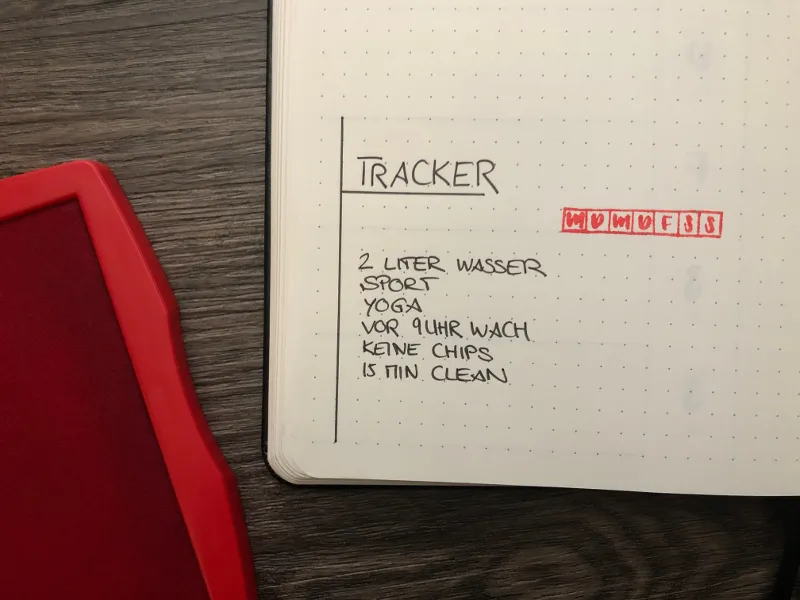 TRACKER
MDMDFSS
2 LITER WASSER
SPORT
YOGA
VOR 9 UHR WACH
KEINE CHIPS
15 MIN CLEAN